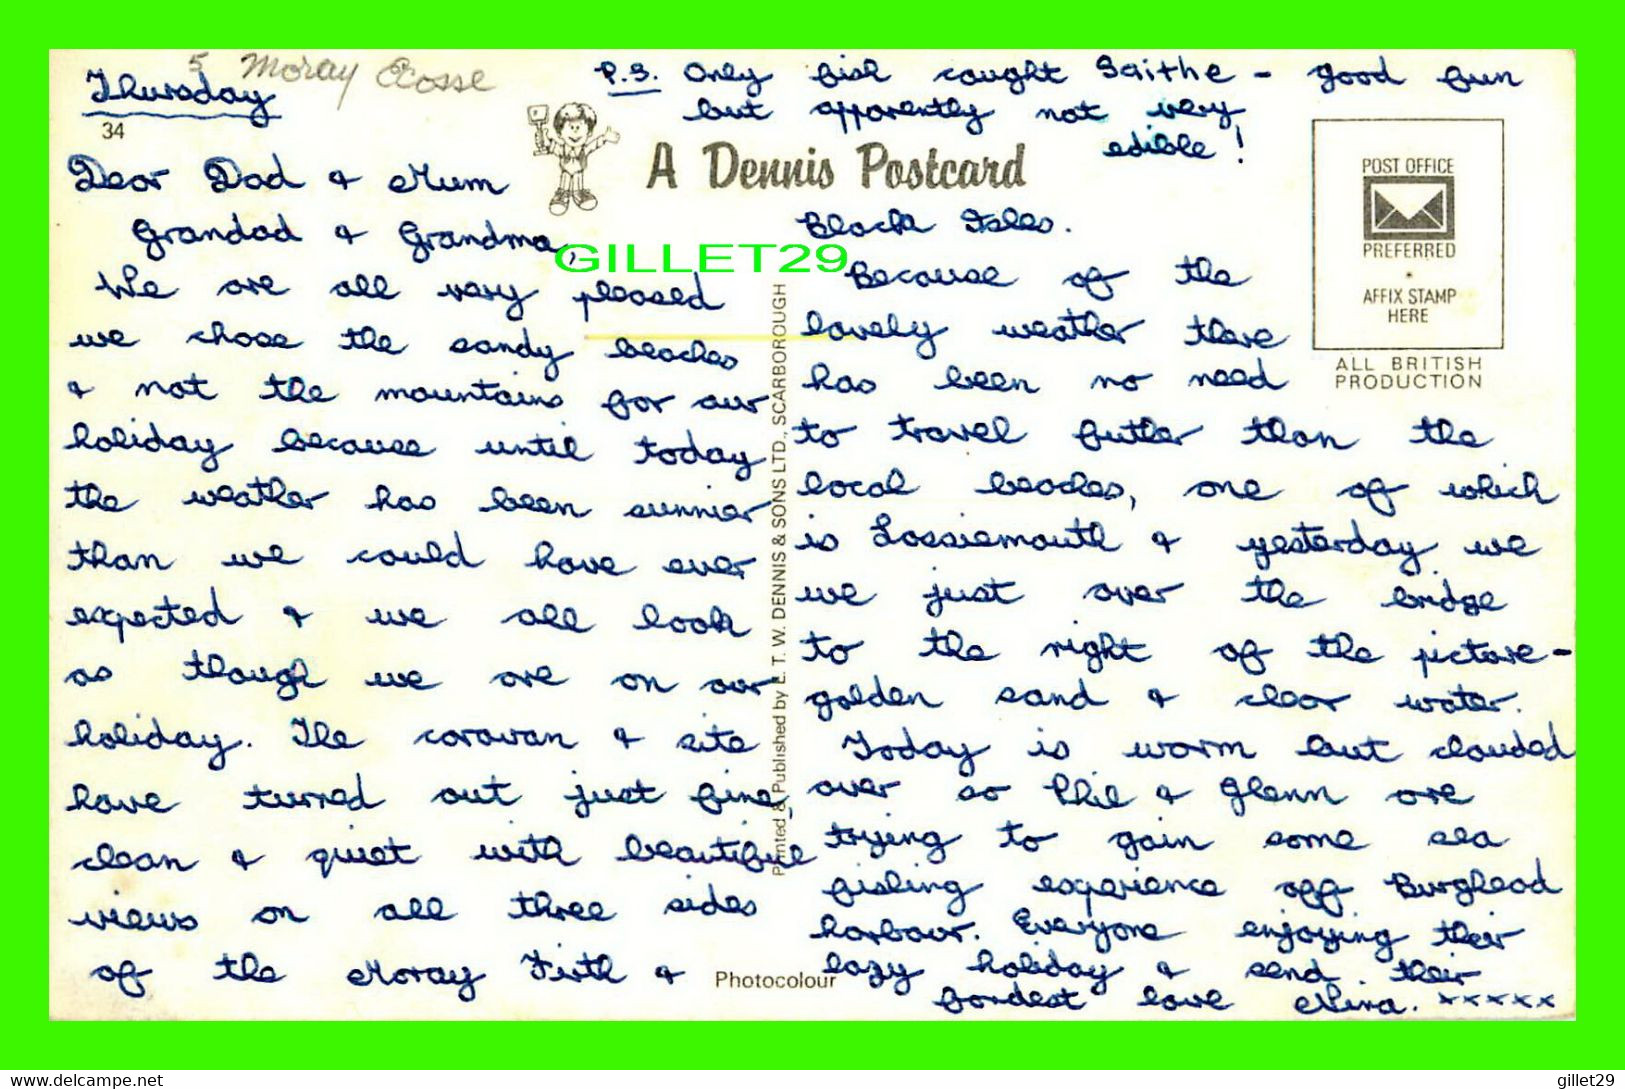 5 Moray Ecosse
Thursday
34
Dear Dad & Mum
Grandad & Grandma,
We are all very pleased
we chose the sandy beaches
& not the mountains for our
holiday because until today
the weather has been sunnier
than we could have ever
expected & we all look
as though we are on our
holiday. The caravan & site
have turned out just fine,
clean & quiet with beautiful
views on all three sides
of the Moray Firth &
P.S. Only fish caught Saithe - good fun
but apparently not very
edible!
A Dennis Postcard
POST OFFICE
PREFERRED
AFFIX STAMP
HERE
ALL BRITISH
PRODUCTION
Black Isles.
Because of the
lovely weather there
has been no need
to travel futher than the
local beaches, one of which
is Lossiemouth & yesterday we
we just over the bridge
to the right of the picture -
golden sand & clear water.
Today is warm but clouded
over so Phil & Glenn are
trying to gain some sea
fishing experience off Burghead
harbour. Everyone enjoying their
lazy holiday & send their
fondest love Nina. xxxxx
Printed & Published by E. T. W. DENNIS & SONS LTD., SCARBOROUGH
Photocolour
GILLET29
delcampe.net
gillet29